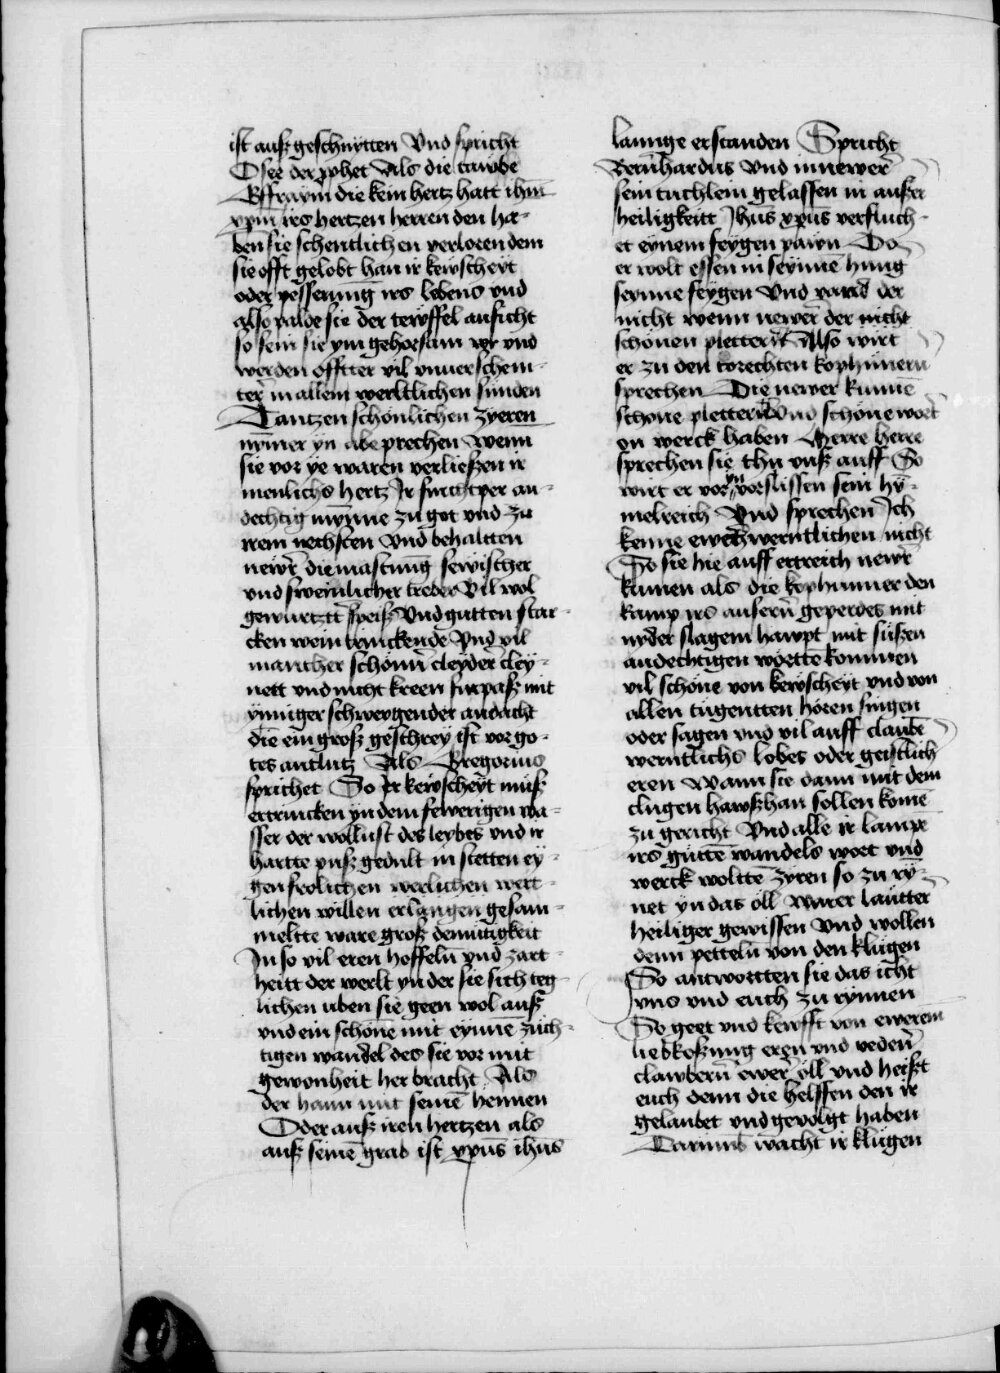 ist auß geschnytten Vnd spricht
Osee der ꝓphet Als die tawbe
Effraym die kein hertz hatt ihm̄
xpm̄ irs hertzen herren den ha-
ben sie schentlichen verloren dem
sie offt gelobt han ir kewscheyt
oder pesserung irs lebens vnd
also palde sie der tewffel ansicht
so sein sie ym gehorsam vnd
werden offtter vil vnuerschem-
ter in allem werltlichen sunden
Tantzen schonlichen zyeren
nymer yn abe prechen Wenn
sie vor ye waren verließen ir
menlichs hertz Ir furchtper an-
dechtig mynne zu got vnd zu
irem nechsten Vnd behaltten
newr̄ die mastung sewischer
vnd sweinlicher treber Vil wol
gewurtztt speiß Vnd gutten star-
cken wein trinckende Vnd vil
mancher schonn cleyder cley-
nett vnd nicht kreen furpaß mit
ynniger schweygender andacht
die ein groß geschrey ist vor go-
tes antlutz Als Gregorius
sprichet So ir kewscheyt muß
ertrincken yn dem fewerigen wa-
sser der wollust des leybes vnd ir
hartte vnß gedult in stetten ey-
gen frolichen werlichen wert-
lichen willen erlangen gesam-
meltte ware groß demutigkeit
In so vil eren hoffeln vnd zart-
heitt der werlt yn der sie sich teg
lichen uben sie geen wol auß
vnd ein schone mit eynne zuch-
tigen wandel des sie vor mit
gewonheit her bracht Als
der hann mit seinē hennen
Oder auß iren hertzen als
auß seinē grab ist xpūs ihūs
launge erstanden Spricht
Bernhardus Vnd in newer
sein tuchlein gelassen in außer
heiligkeitt Ihūs xpūs verfluch-
et eynem feygen pawm Do
er wolt essen in seynnē hung
seynne feygen Vnd ward der
nicht wenn newer der nicht
schonen pletter Also wirt
er zu den torechten kophunern
sprechen Die newer kunnē
schone pletter Vnd schone wort
on werck haben Herre herre
sprechen sie thu vnß auff So
wirt er vor yn vorslissen sein hy-
melreich Vnd sprechen Ich
kenne ewch werntlichen nicht
So sie hie auff ertreich newr̄
kumen als die kophunner den
kamp irs ausern geperdes mit
nyder slagem hawpt mit sußen
andechtigen wortte kommen
vil schone von kewscheyt vnd von
allen tugentten horen singen
oder sagen vnd vil auff claubē
werntlichs lobes oder geistlich
eren Wann sie dann mit dem
clugen hawßhan sollen komē
zu gericht Vnd alle ir lampe
irs guttē wandels wort vnd
werck wolttē zyren so zu ry-
net yn das oll warer lautter
heiliger gewissen Vnd wollen
denn petteln von den klugen
So antwortten sie das icht
vns vnd euch zu rynnen
So geet vnd kewfft von ewerem
liebkoßung eren vnd reden
clawbern ewer oll vnd heist
euch denn die helffen den ir
gelaubet vnd gevolgt haben
Darumb wacht ir klugen